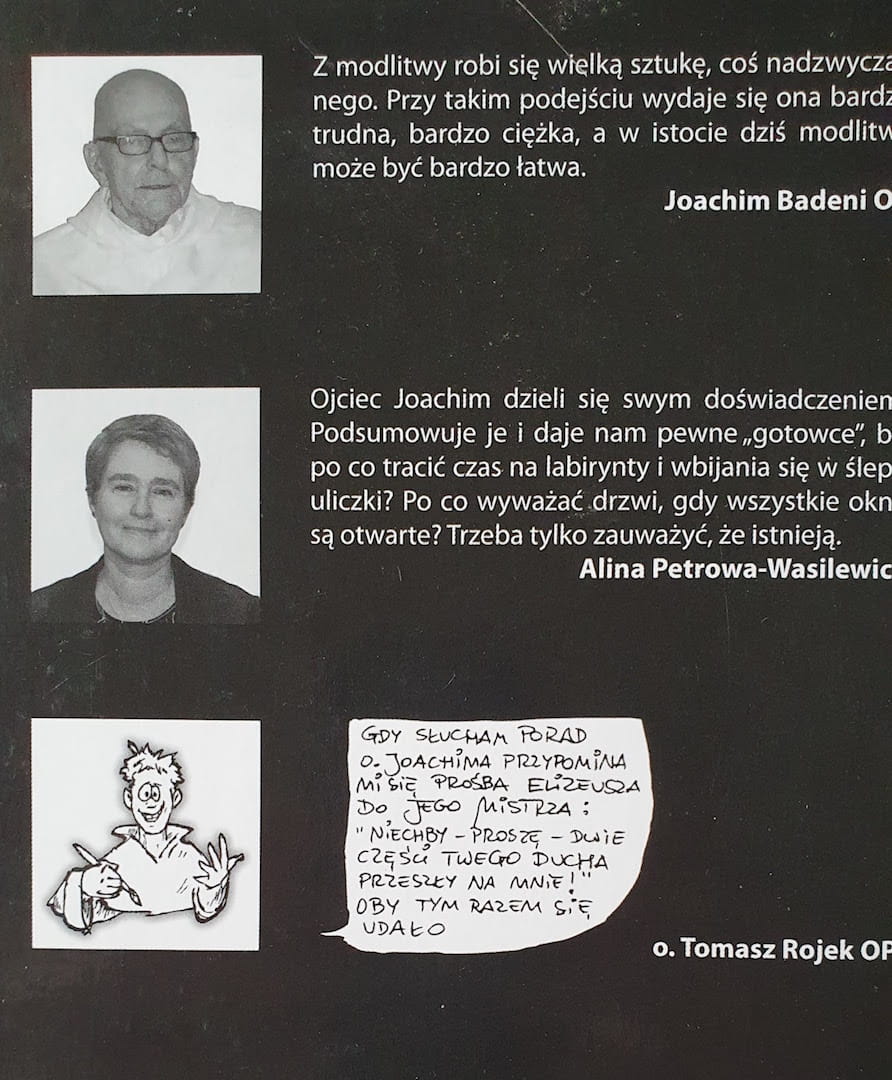 Z modlitwy robi się wielką sztukę, coś nadzwycza
nego. Przy takim podejściu wydaje się ona bardz
trudna, bardzo ciężka, a w istocie dziś modlitw
może być bardzo łatwa.
Joachim Badeni O
Ojciec Joachim dzieli się swym doświadczeniem
Podsumowuje je i daje nam pewne „gotowce”, b
po co tracić czas na labirynty i wbijania się w ślep
uliczki? Po co wyważać drzwi, gdy wszystkie okn
są otwarte? Trzeba tylko zauważyć, że istnieją.
Alina Petrowa-Wasilewic
GDY SŁUCHAM PORAD
O. JOACHIMA PRZYPOMINA
MI SIĘ PROŚBA ELIZEUSZA
DO JEGO MISTRZA:
"NIECHBY - PROSZĘ - DWIE
CZĘŚCI TWEGO DUCHA
PRZESZŁY NA MNIE!"
OBY TYM RAZEM SIĘ
UDAŁO
o. Tomasz Rojek OP